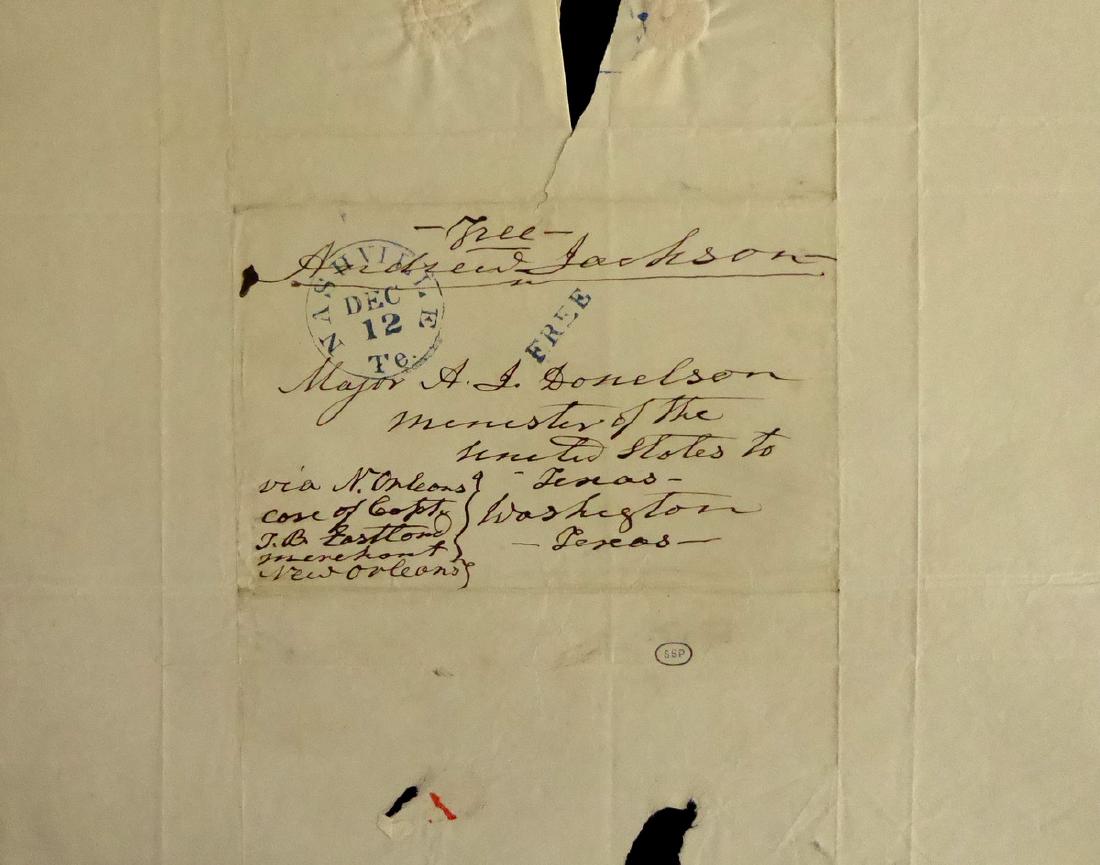 - Free -
Andrew Jackson
NASHVILLE Te.
DEC
12
FREE
Major A. J. Donelson
minister of the
united States to
- Texas -
Washington
- Texas -
via N. Orleans
care of Capt.
T. B. Eastland
merchant
New Orleans
SSP